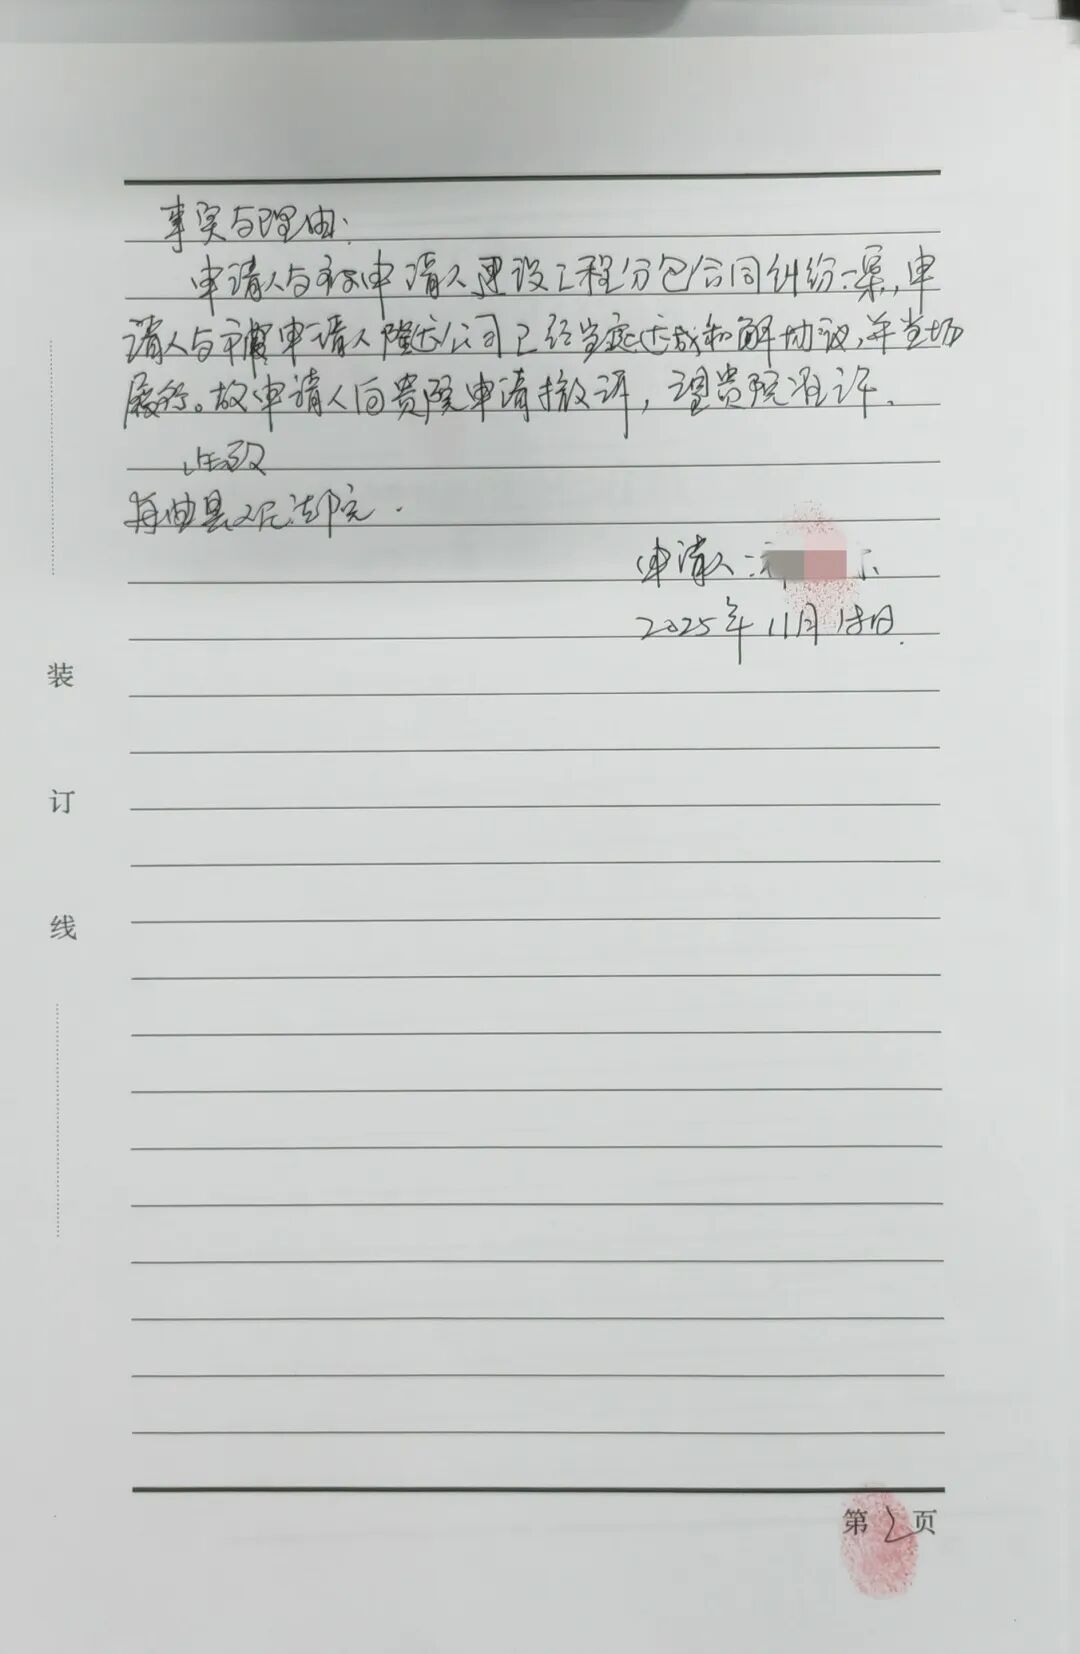 事实与理由:
申请人与被申请人建设工程分包合同纠纷一案,申
请人与被申请人隆达公司已经当庭达成和解协议,并当场
履行。故申请人向贵院申请撤诉,望贵院准许.
此致
舟曲县人民法院.
申请人:
2025年11月18日.
装
订
线
第2页